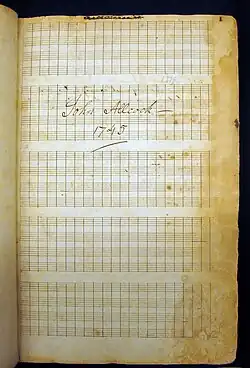 John Allcock
1745